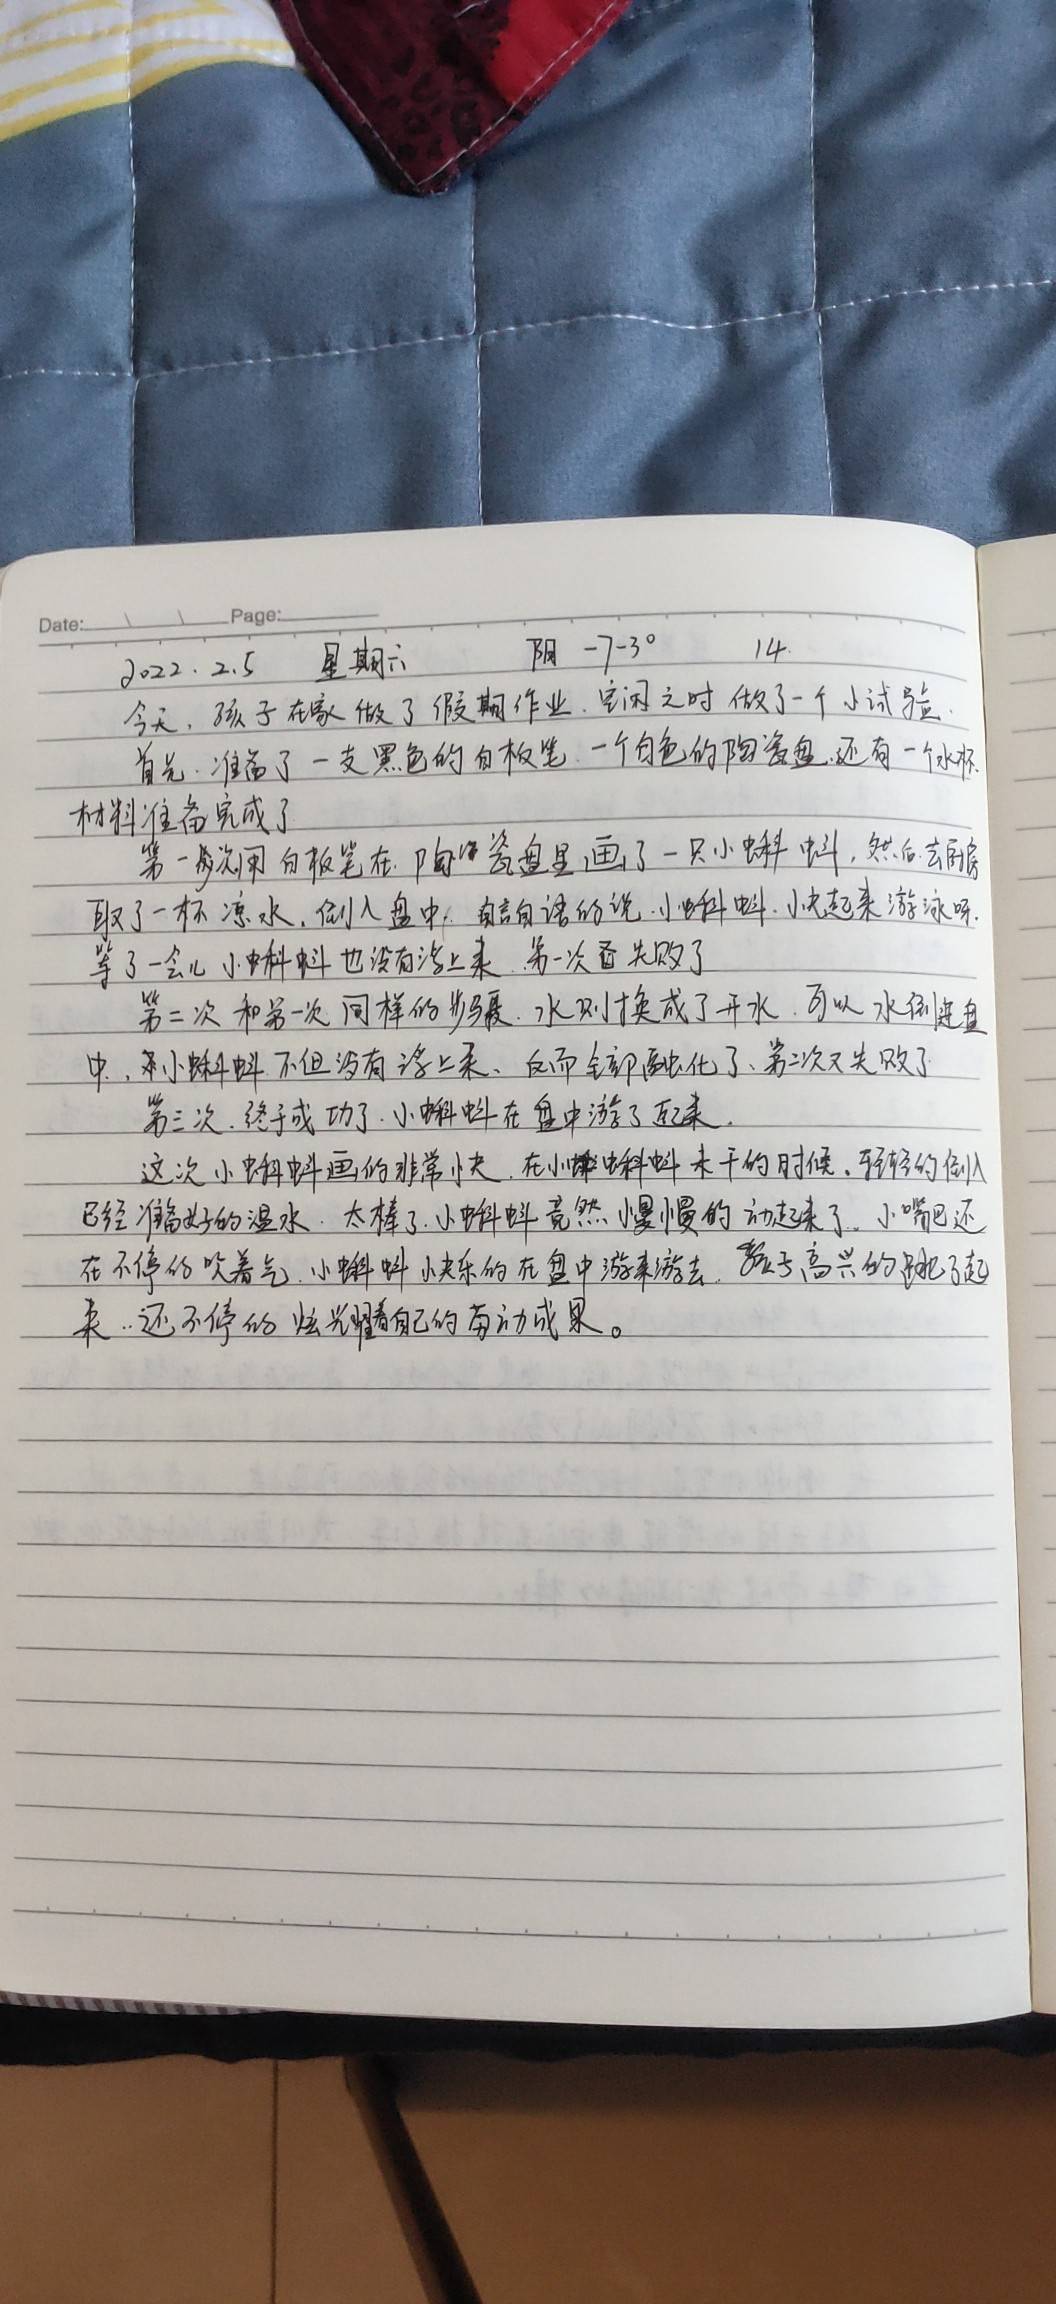 Date: \ \ Page:
2022.2.5 星期六 阴 -7-3° 14.
今天,孩子在家做了假期作业.空闲之时做了一个小试验.
首先.准备了一支黑色的白板笔.一个白色的陶瓷盘.还有一个水杯.
材料准备完成了
第一次用白板笔在陶瓷盘里画了一只小蝌蚪,然后去厨房
取了一杯凉水.倒入盘中.自言自语的说.小蝌蚪.快起来游泳呀.
等了一会儿小蝌蚪也没有浮上来.第一次失败了
第二次和第一次同样的步骤.水则换成了开水.可以水倒进盘
中,小蝌蚪不但没有浮上来、反而全部融化了、第二次又失败了
第三次.终于成功了.小蝌蚪在盘中游了起来.
这次小蝌蚪画的非常快.在小蝌蚪未干的时候.轻轻的倒入
已经准备好的温水.太棒了.小蝌蚪竟然慢慢的动起来了。小嘴巴还
在不停的吹着气.小蝌蚪快乐的在盘中游来游去.孩子高兴的跳了起
来..还不停的炫耀着自己的劳动成果。